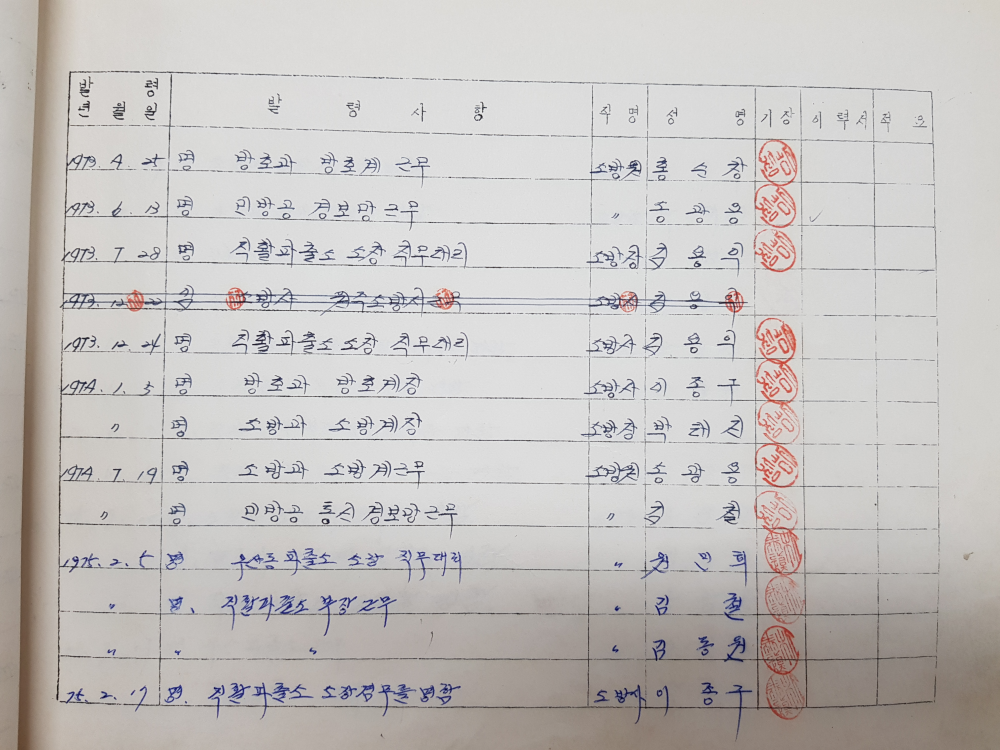 발령 년월일 발령사항 직명 성명 기장 이력서 적요
1973. 4. 25 명 방호과 방호계 근무 소방원 홍순창
1973. 6. 13 명 민방공 경보망 근무 〃 송광용
1973. 7. 28 명 직활파출소 소장 직무대리 소방장 김용익
1973. 12. 22 소방사 소방서 소방사 김용
1973. 12. 24 명 직활파출소 소장 직무대리 소방사 김용익
1974. 1. 5 명 방호과 방호계장 소방사 이종구
〃 명 소방과 소방계장 소방장 박태진
1974. 7. 19 명 소방과 소방계 근무 소방원 송광용
〃 명 민방공 통신 경보망 근무 〃 김철
1975. 2. 5 명 우산동 파출소 소장 직무대리 〃 원민희
〃 명. 직할파출소 부장 근무 〃 김철
〃 〃 〃 〃 김동원
75. 2. 17 명. 직할파출소 소장겸무를 명함 소방사 이종구